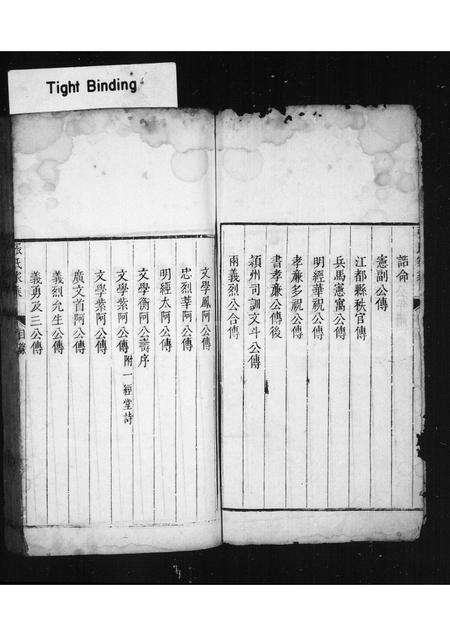 Tight Binding
誥命
憲副公傳
江都縣秩官傳
兵馬憲寓公傳
明經華祝公傳
孝廉多祝公傳
書孝廉公傳後
潁州司訓文斗公傳
兩義烈公合傳
文學鳳阿公傳
忠烈華阿公傳
明經太阿公傳
文學衡阿公壽序
文學紫阿公傳 附一經堂詩
文學葉阿公傳
廣文首阿公傳
義烈先生公傳
義勇及三公傳
張氏家乘 目錄